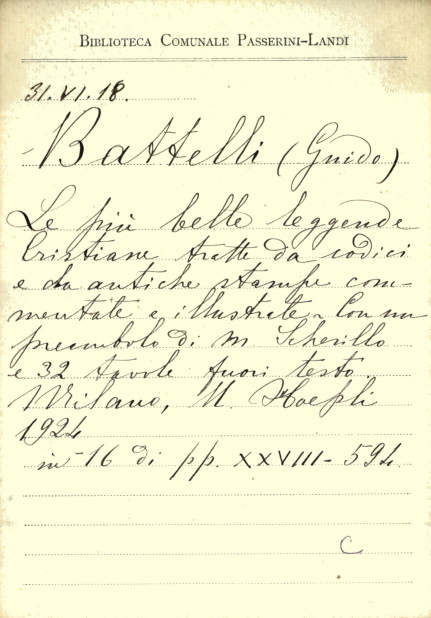 BIBLIOTECA COMUNALE PASSERINI-LANDI
31. VI. 18.
Battelli (Guido)
Le più belle leggende
Cristiane tratte da codici
e da antiche stampe com-
mentate e illustrate. Con un
preambolo di M. Scherillo
e 32 tavole fuori testo.
Milano, U. Hoepli
1924
in-16 di pp. XXVIII-594.
C